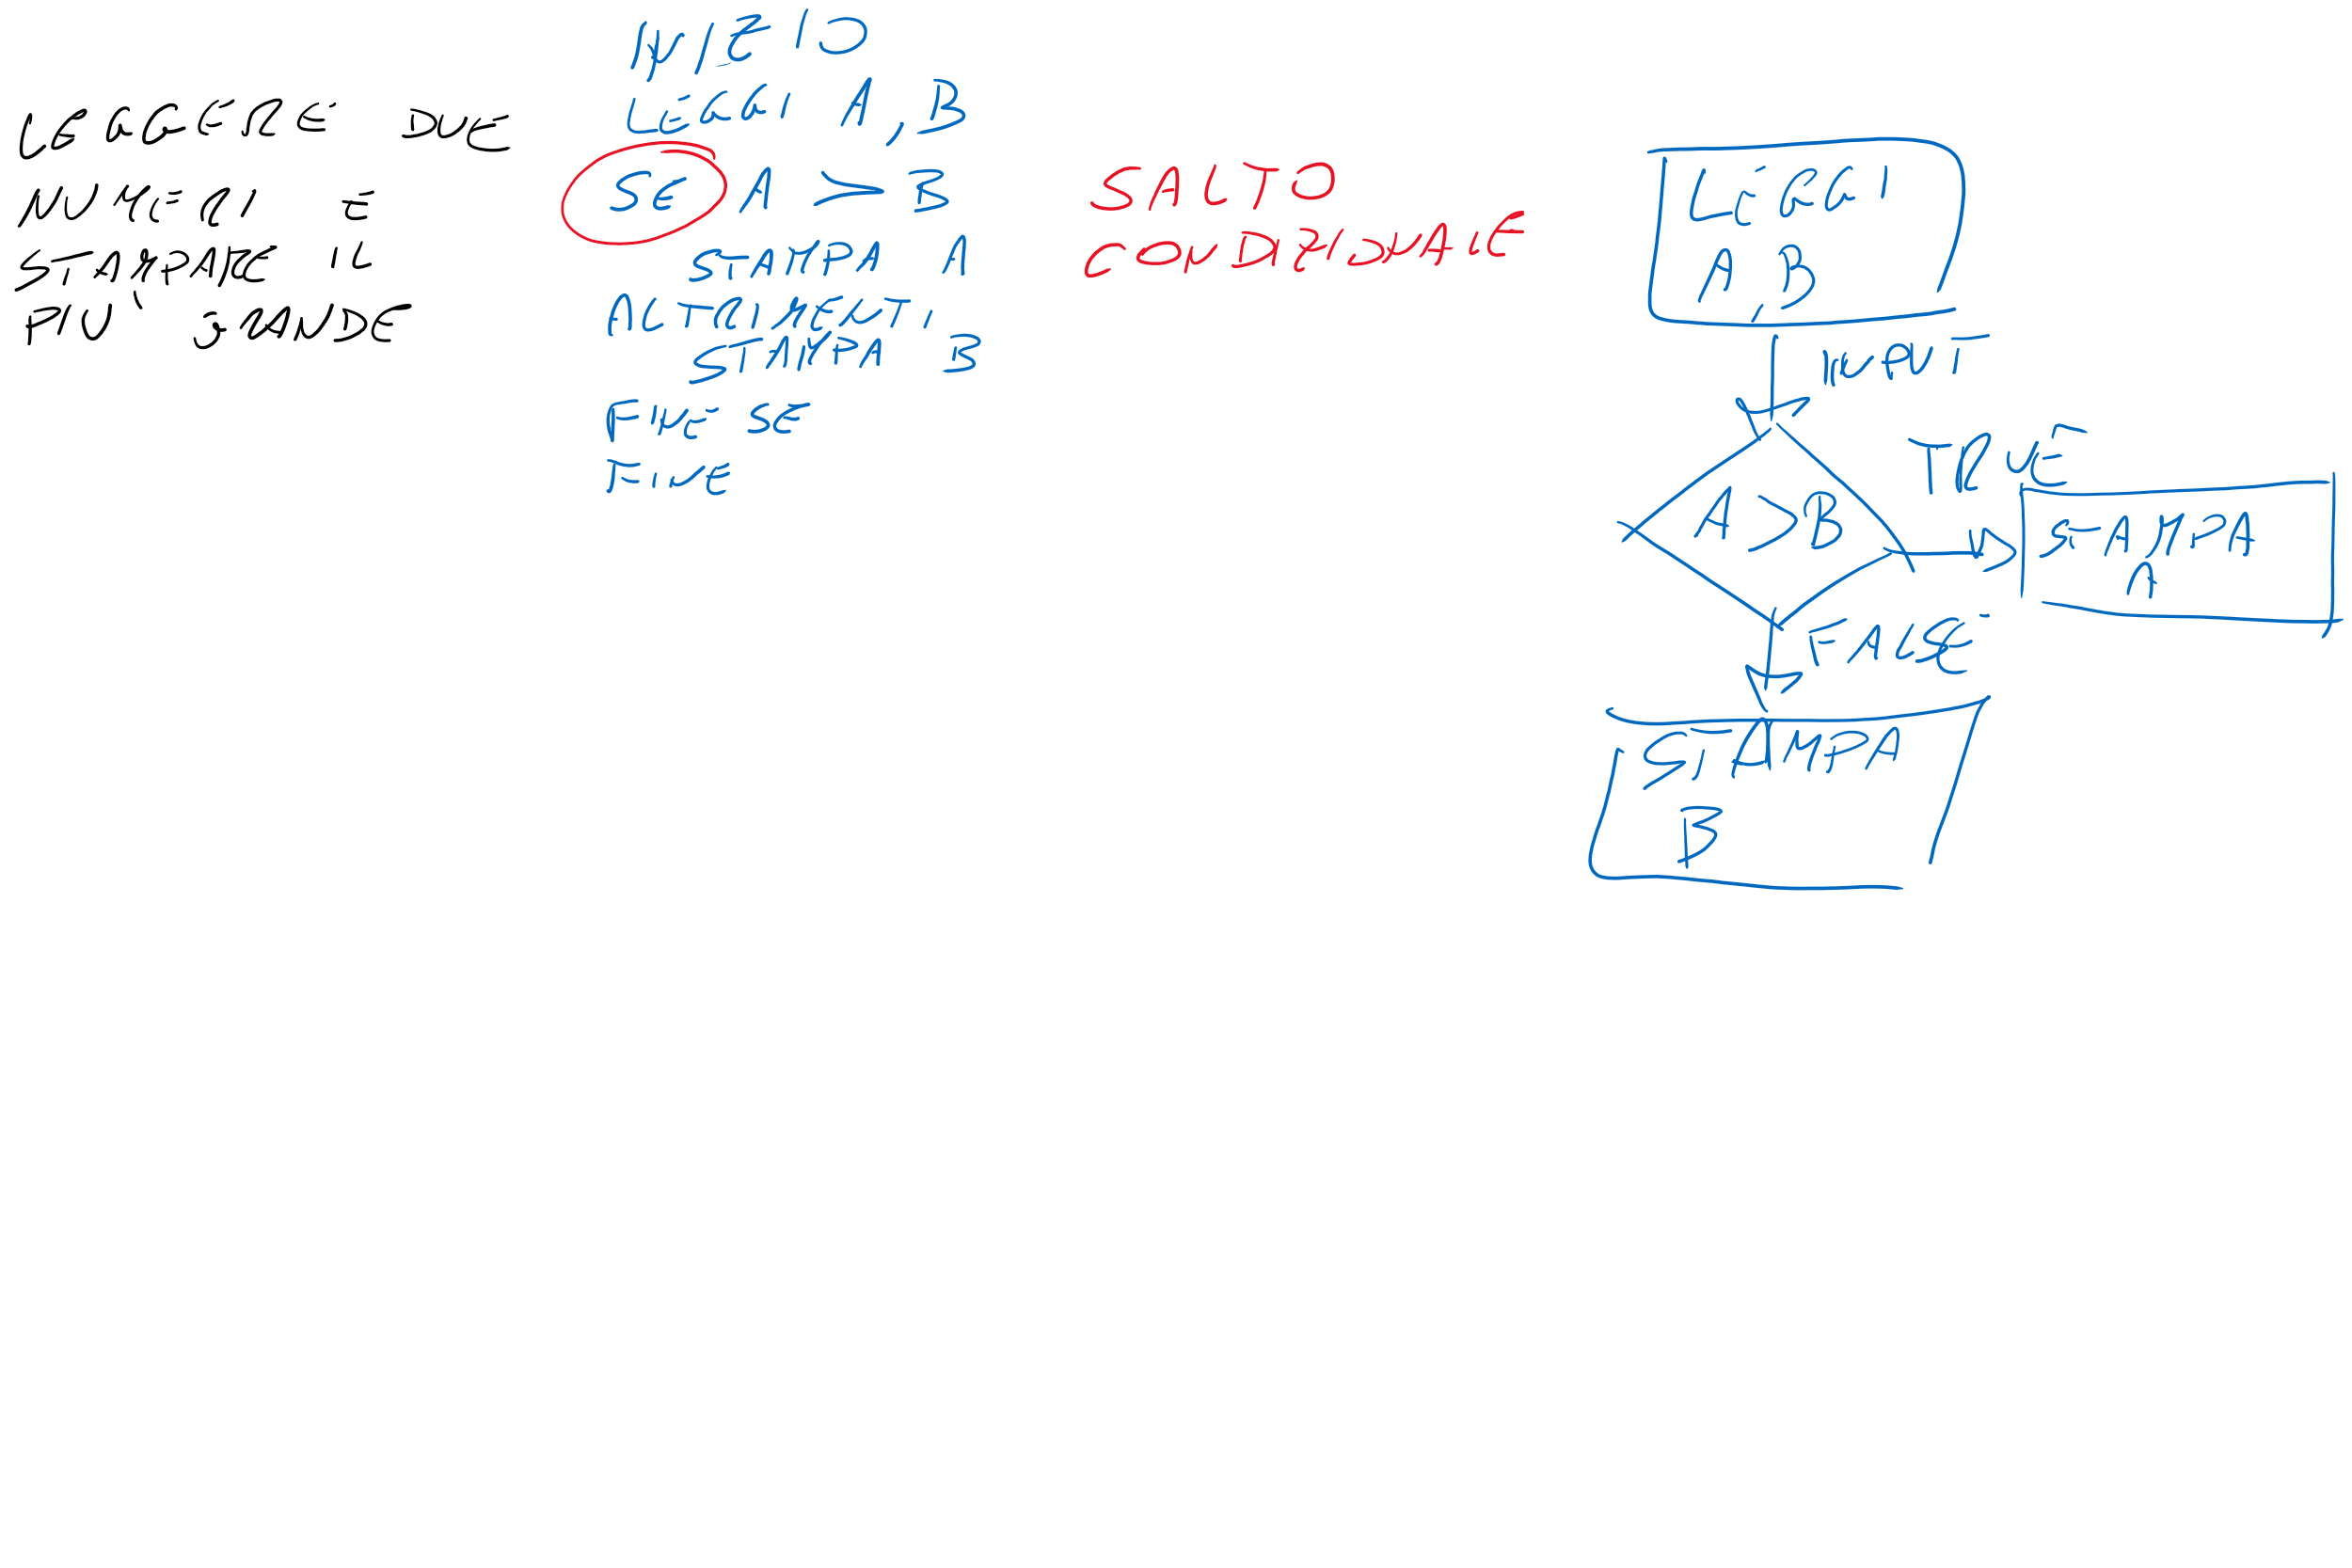 LEGGERE DUE
NUMERI E
STAMPARE IL
PIU' GRANDE
INIZIO
LEGGI A, B
SE A > B
STAMPA A
ALTRIMENTI
STAMPA B
FINE SE
FINE
SALTO
CONDIZIONALE
LEGGI
A, B
INPUT
A > B
TRUE
STAMPA
A
FALSE
STAMPA
B